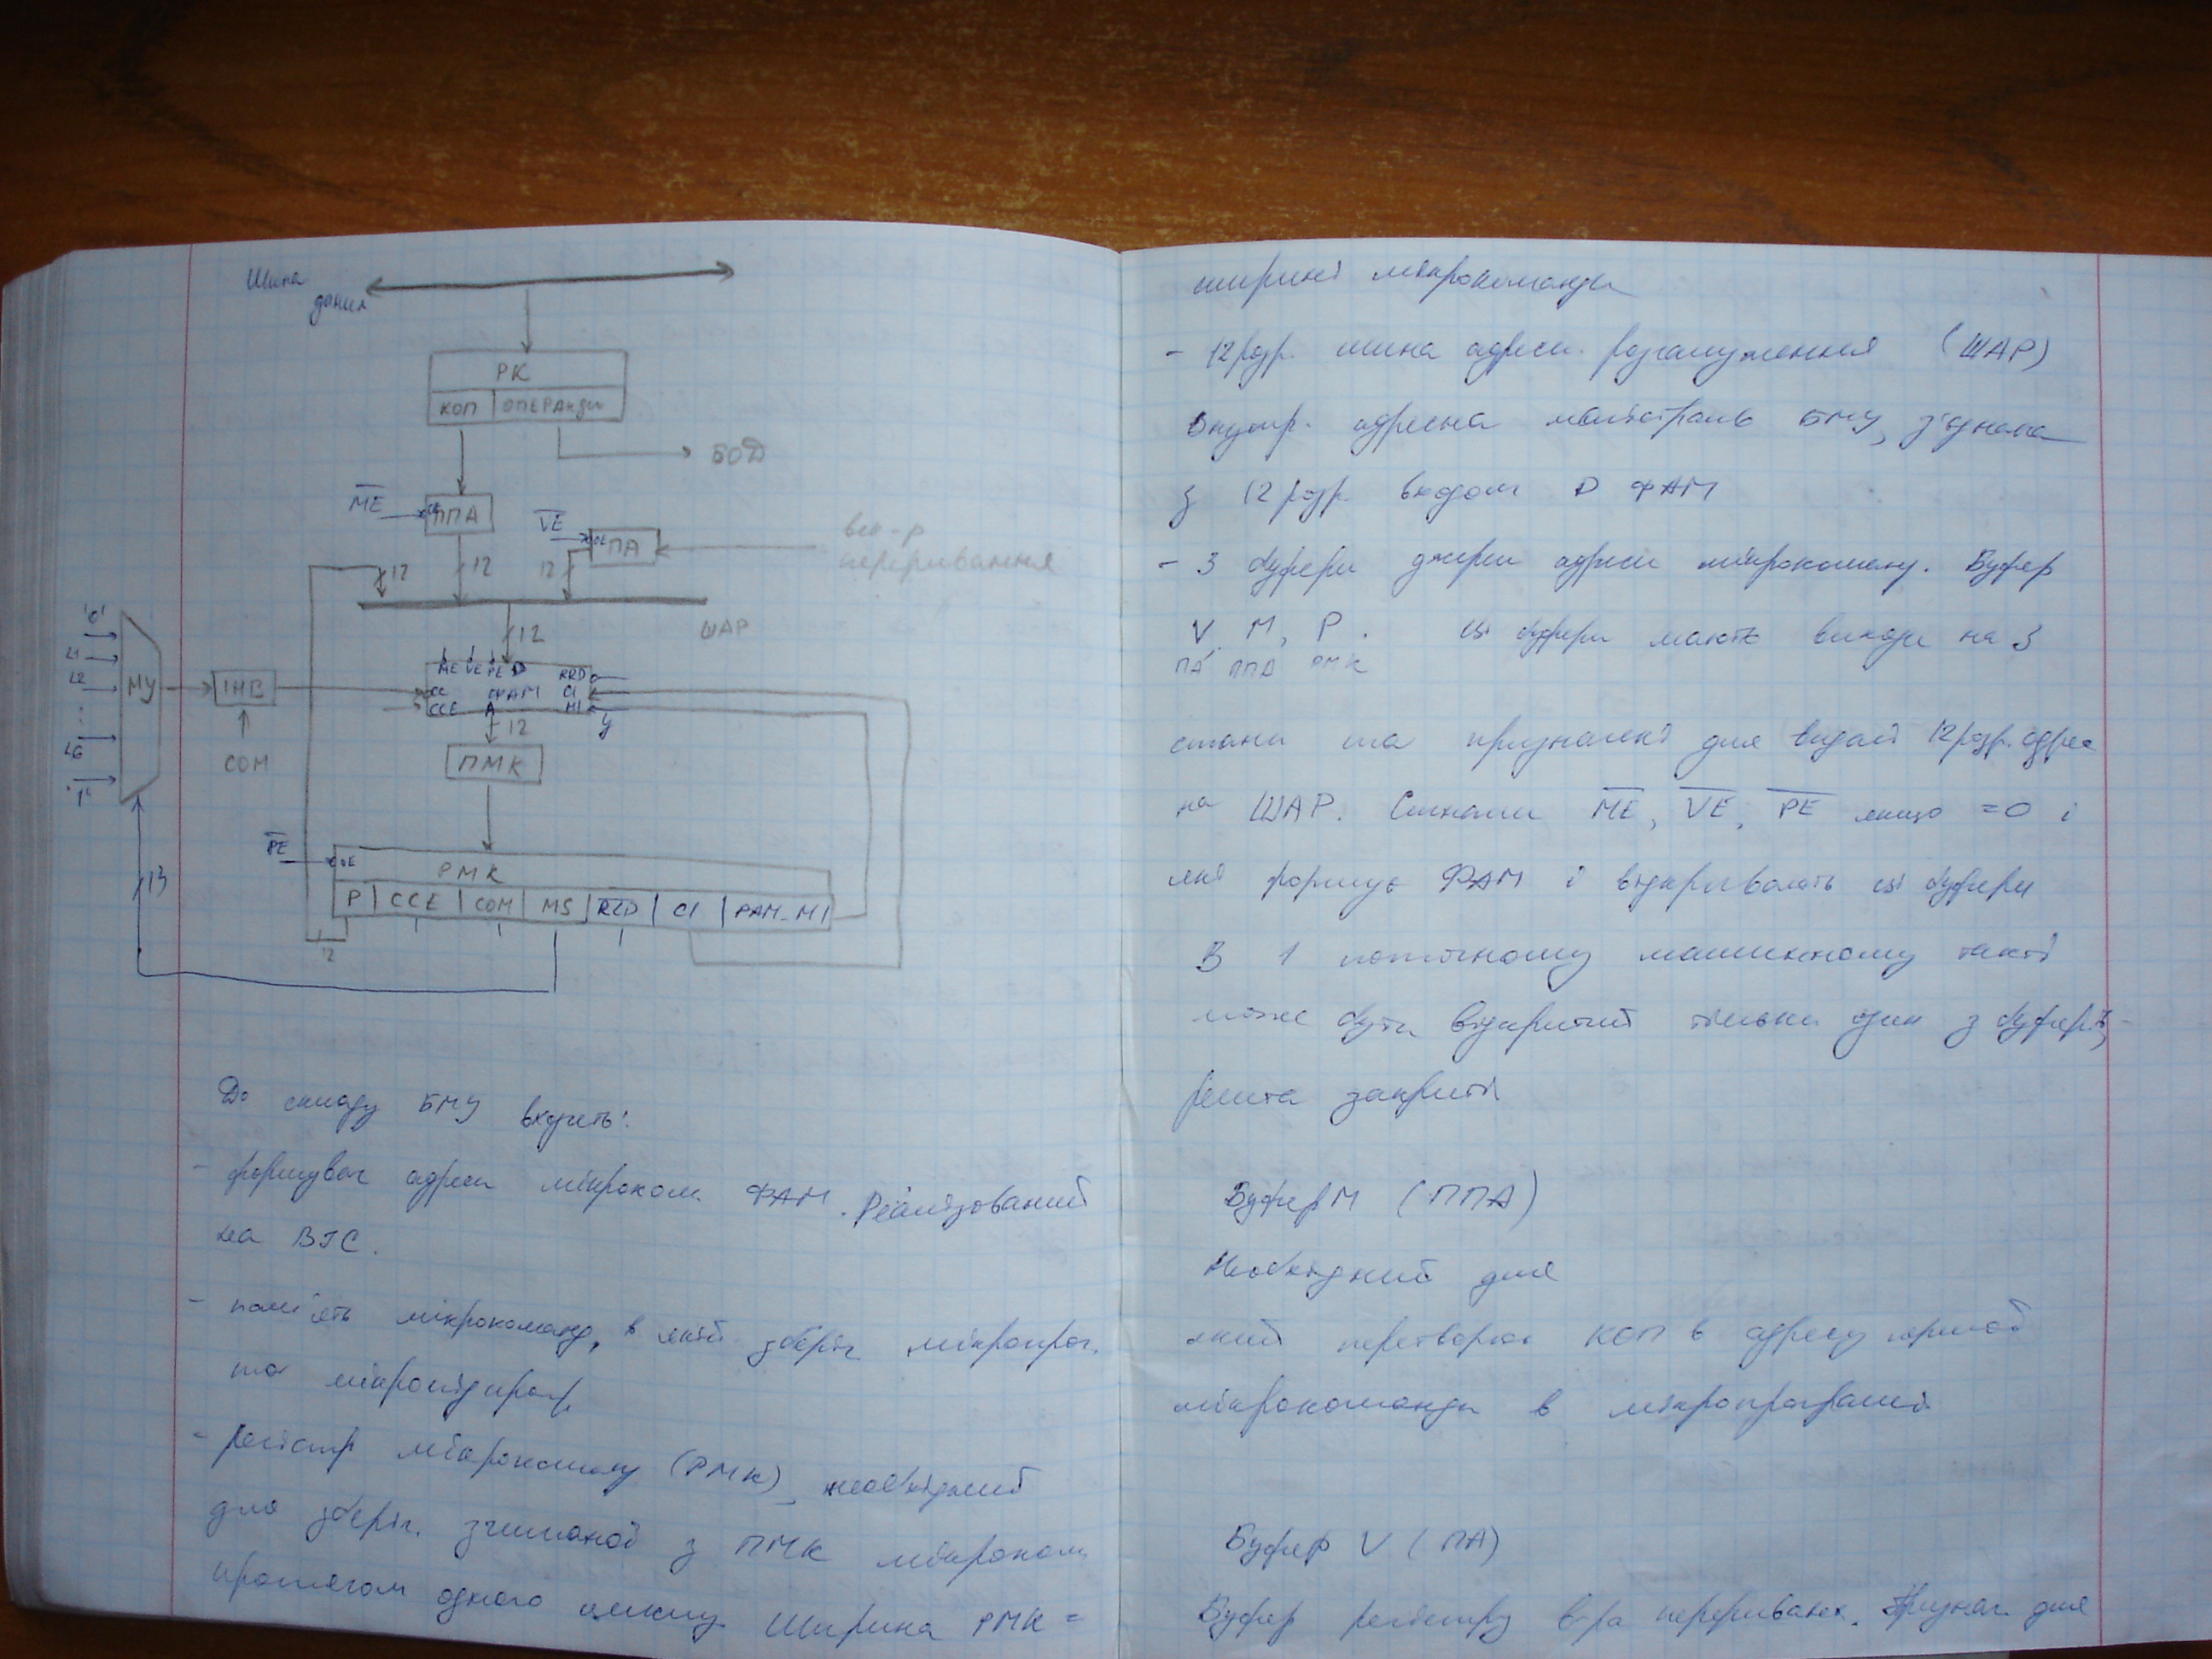 Шина
даних
РК
КОП ОПЕРАНДИ
БОД
ME
OE ППА
VE
OE ПА
век-р
переривання
12 12 12
ШАР
12
'0'
L1
L2
L6
'1'
МУ
ІНВ
COM
ME VE PE D RRD
CC ФАМ CI
CCE A MI
У
12
ПМК
13
PE
OE РМК
P CCE COM MS RLD CI РАМ_MI
12
До складу БМУ входить:
- формувач адреси мікроком. ФАМ. Реалізований
на ВІС.
- пам'ять мікрокоманд, в якій зберіг мікропрог.
та мікропідпрогр
- регістр мікрокоманд (РМК), необхідний
для зберіг. зчитаної з ПМК мікроком.
протягом одного циклу. Ширина РМК =
ширині мікрокоманди
- 12розр. шина адреси розгалуження (ШАР)
Внутр. адресна магістраль БМУ, з'єднана
з 12 розр. входом D ФАМ
- 3 буфери джерел адреси мікрокоманд. Буфер
V, M, P. Ці буфери мають виходи на 3
ПА ППА РМК
стани та призначені для видачі 12розр. адрес
на ШАР. Сигнали ME, VE, PE якщо =0 і
які формує ФАМ і відкривають ці буфери
В 1 поточному машинному такті
може бути відкритий тільки один з буферів,
решта закриті
Буфер М (ППА)
Необхідний для
який перетворює КОП в адресу першої
мікрокоманди в мікропрограмі.
Буфер V (ПА)
Буфер регістру в-ра переривань. Признач. для